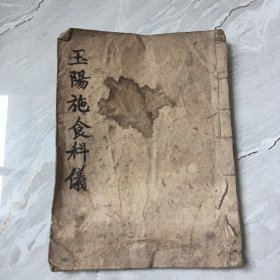 玉陽施食科儀